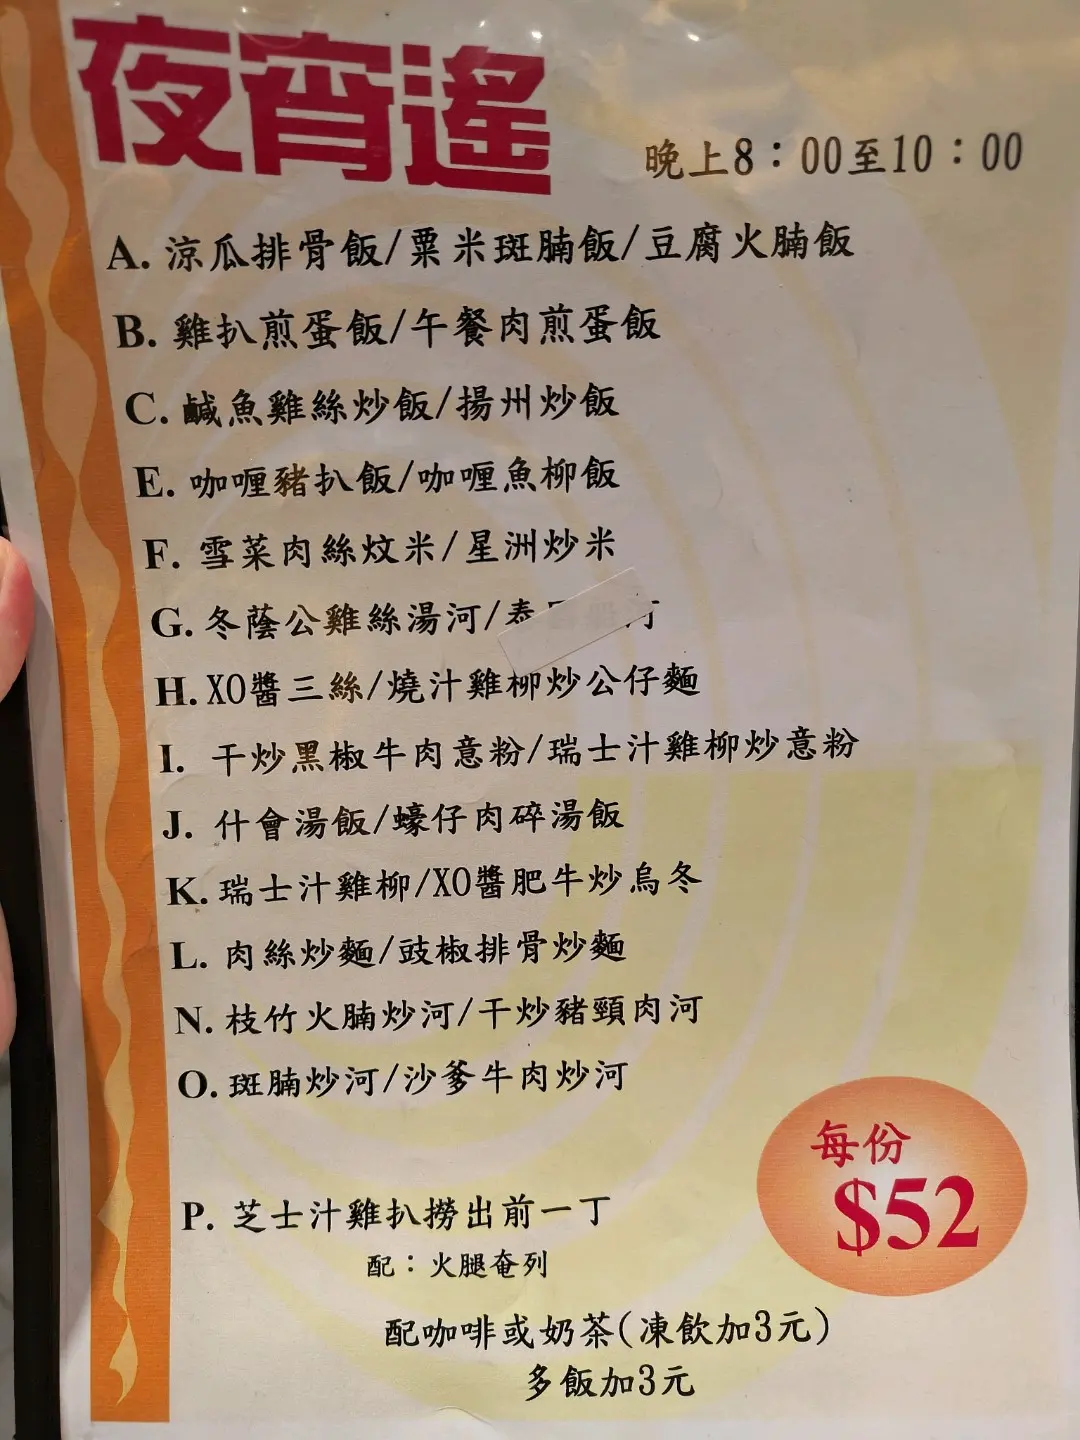 夜宵遙
晚上8：00至10：00
A. 涼瓜排骨飯/粟米斑腩飯/豆腐火腩飯
B. 雞扒煎蛋飯/午餐肉煎蛋飯
C. 鹹魚雞絲炒飯/揚州炒飯
E. 咖喱豬扒飯/咖喱魚柳飯
F. 雪菜肉絲炆米/星洲炒米
G. 冬蔭公雞絲湯河/泰 河
H. XO醬三絲/燒汁雞柳炒公仔麵
I. 干炒黑椒牛肉意粉/瑞士汁雞柳炒意粉
J. 什會湯飯/蠔仔肉碎湯飯
K. 瑞士汁雞柳/XO醬肥牛炒烏冬
L. 肉絲炒麵/豉椒排骨炒麵
N. 枝竹火腩炒河/干炒豬頸肉河
O. 斑腩炒河/沙爹牛肉炒河
每份
$52
P. 芝士汁雞扒撈出前一丁
配：火腿奄列
配咖啡或奶茶(凍飲加3元)
多飯加3元